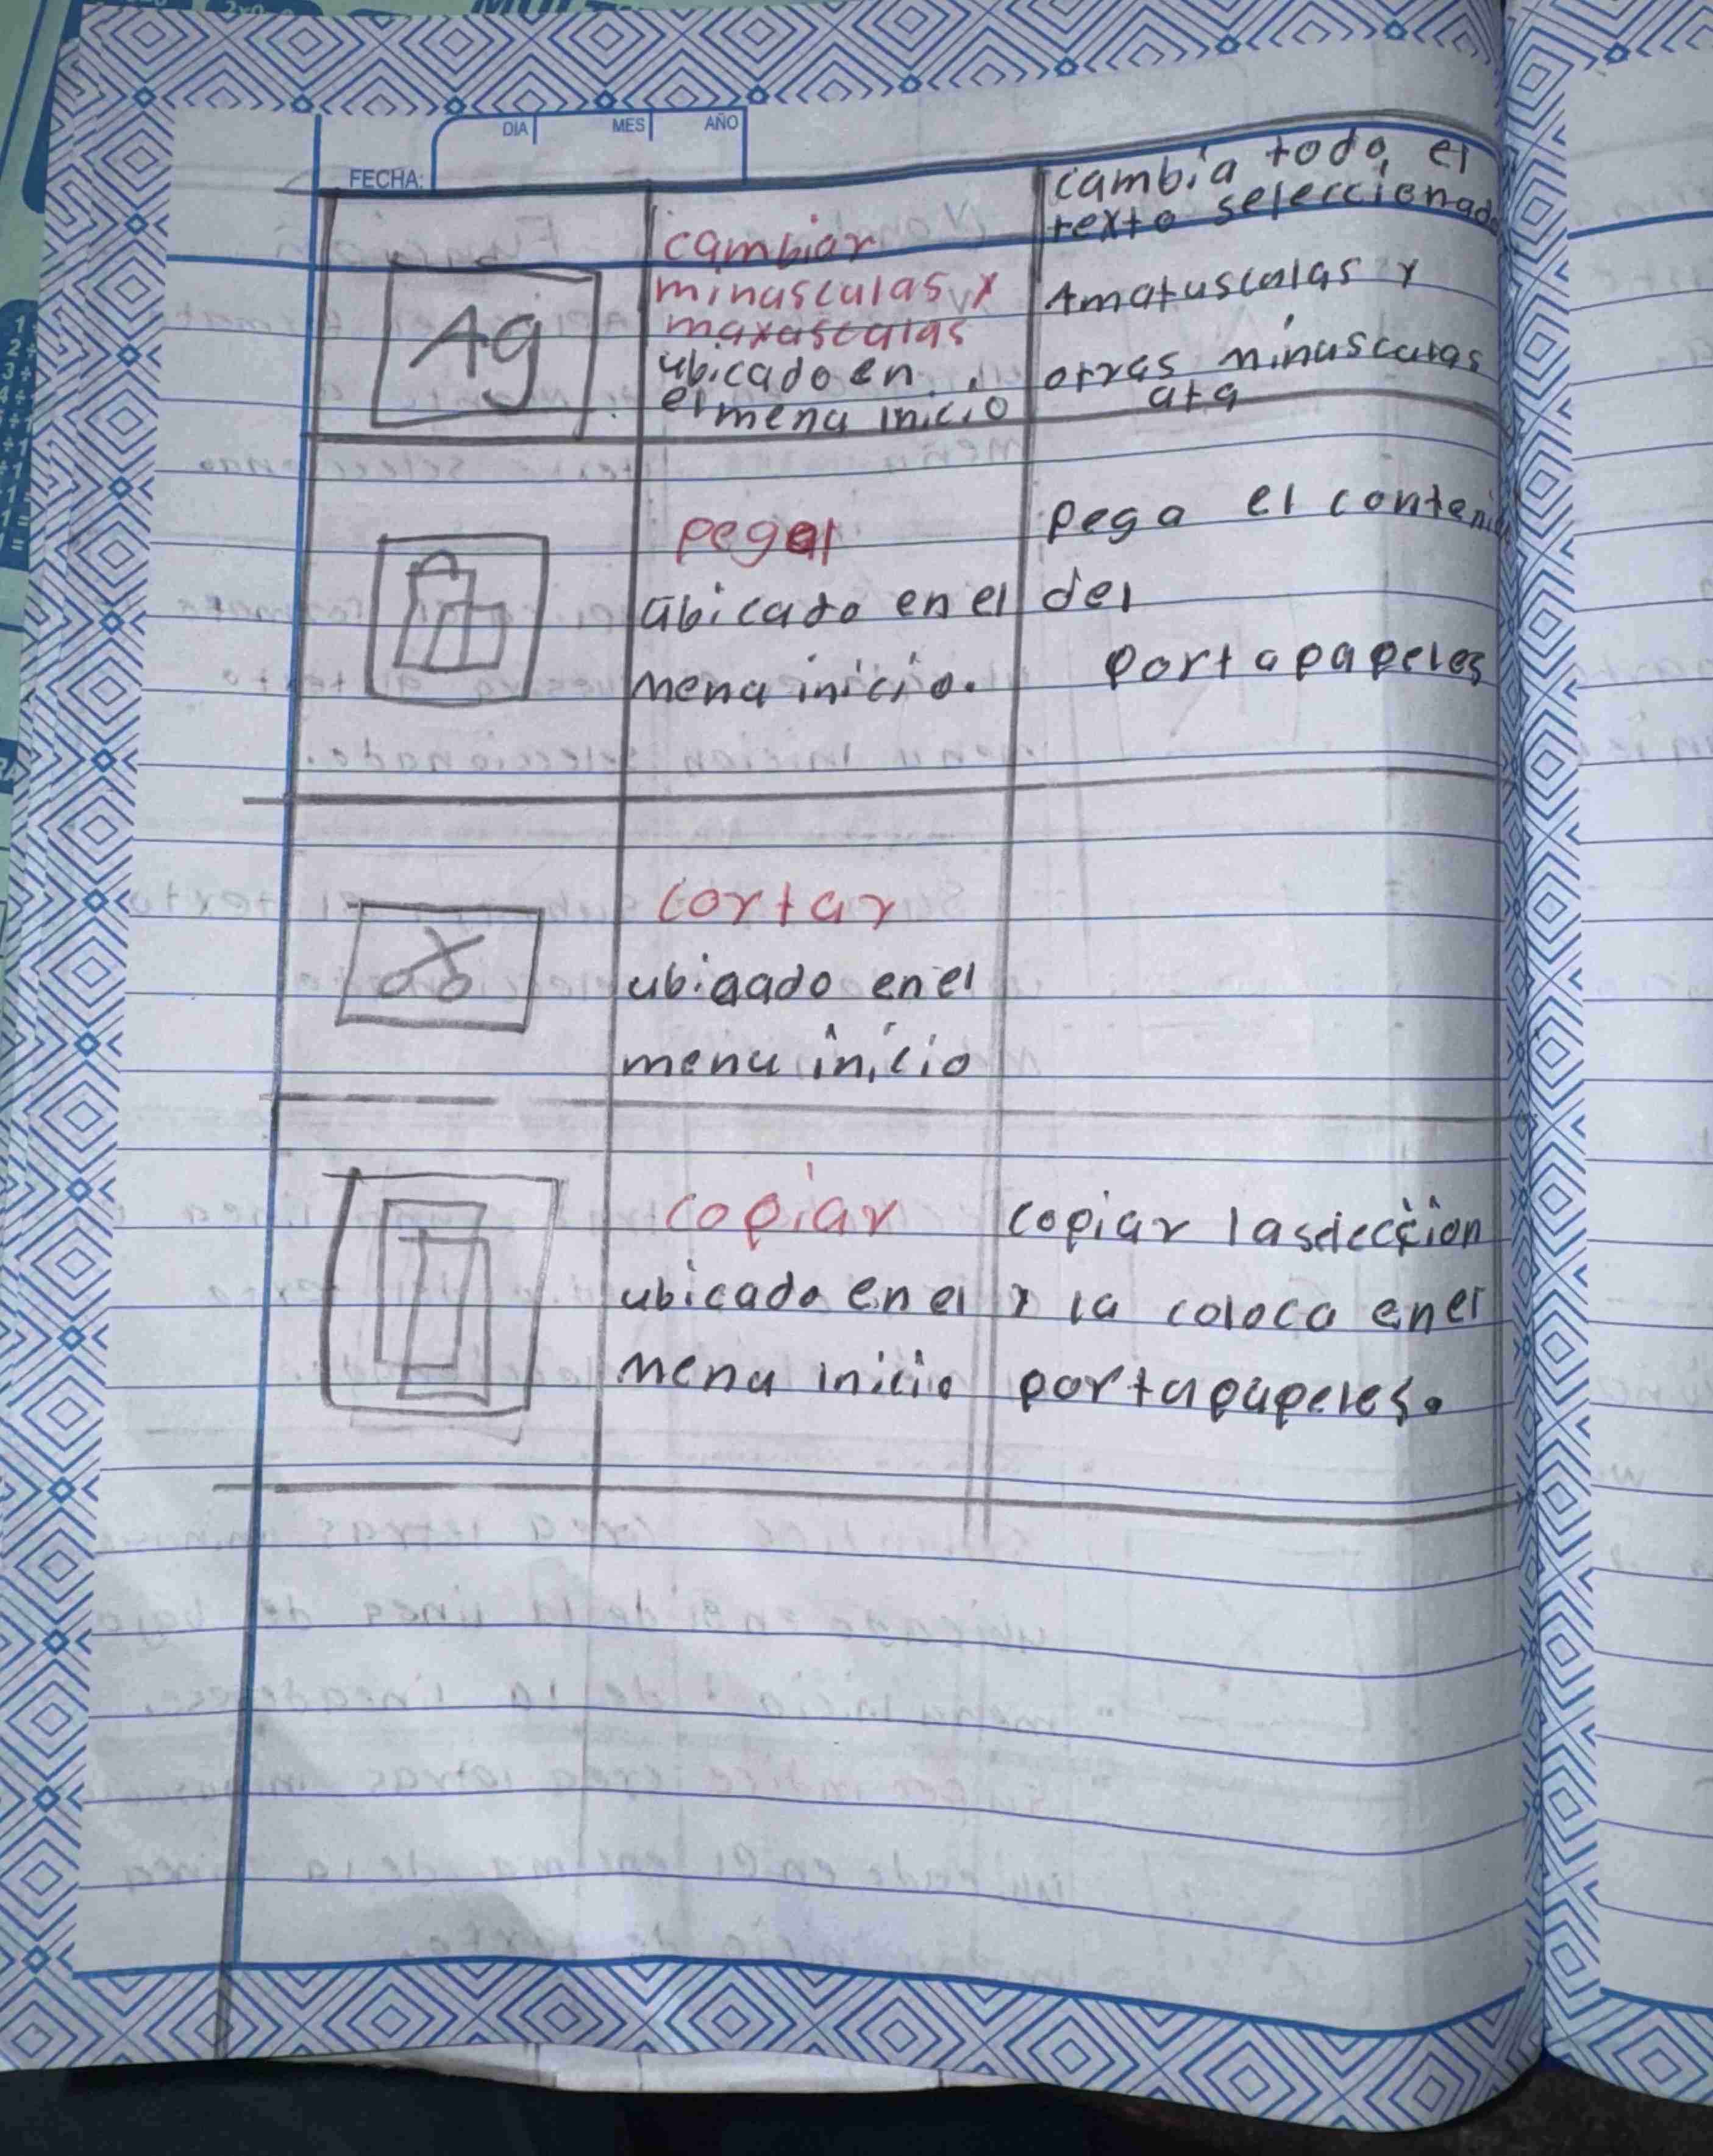 DIA MES AÑO
FECHA:
Ag
cambiar
minusculas y
mayusculas
ubicado en
el menu inicio
cambia todo el
texto seleccionado
A matusculas y
otras minusculas
pegar
ubicado en el
menu inicio.
pega el conteni
del
portapapeles
cortar
ubicado en el
menu inicio
copiar
ubicado en el
menu inicio
copiar la selección
y la coloca en el
portapapeles.